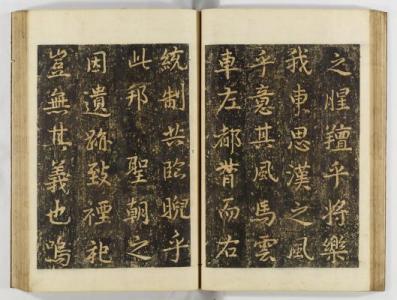 之腥羶乎將樂
我東思漢之風
乎意其風馬雲
車左都督而右
統制共臨睨乎
此邦聖朝之
因遺跡致禋祀
豈無其義也嗚